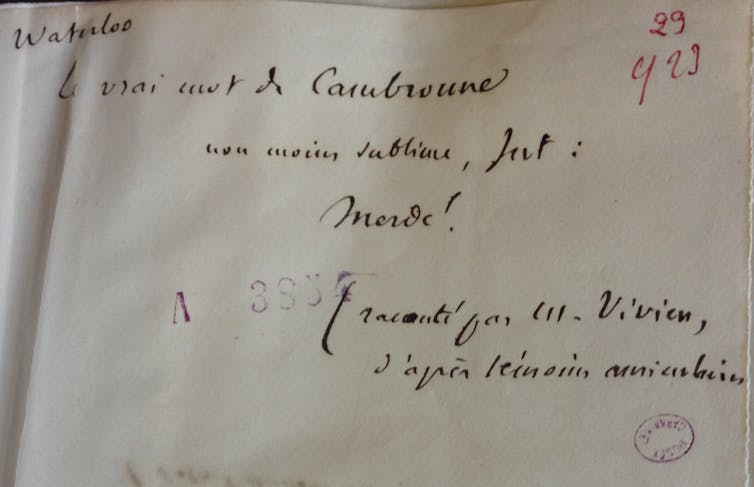 Waterloo
29
923
le vrai mot de Cambronne
non moins sublime, fut :
Merde !
A 3834
(raconté par M. Vivien,
d'après témoins auriculaires